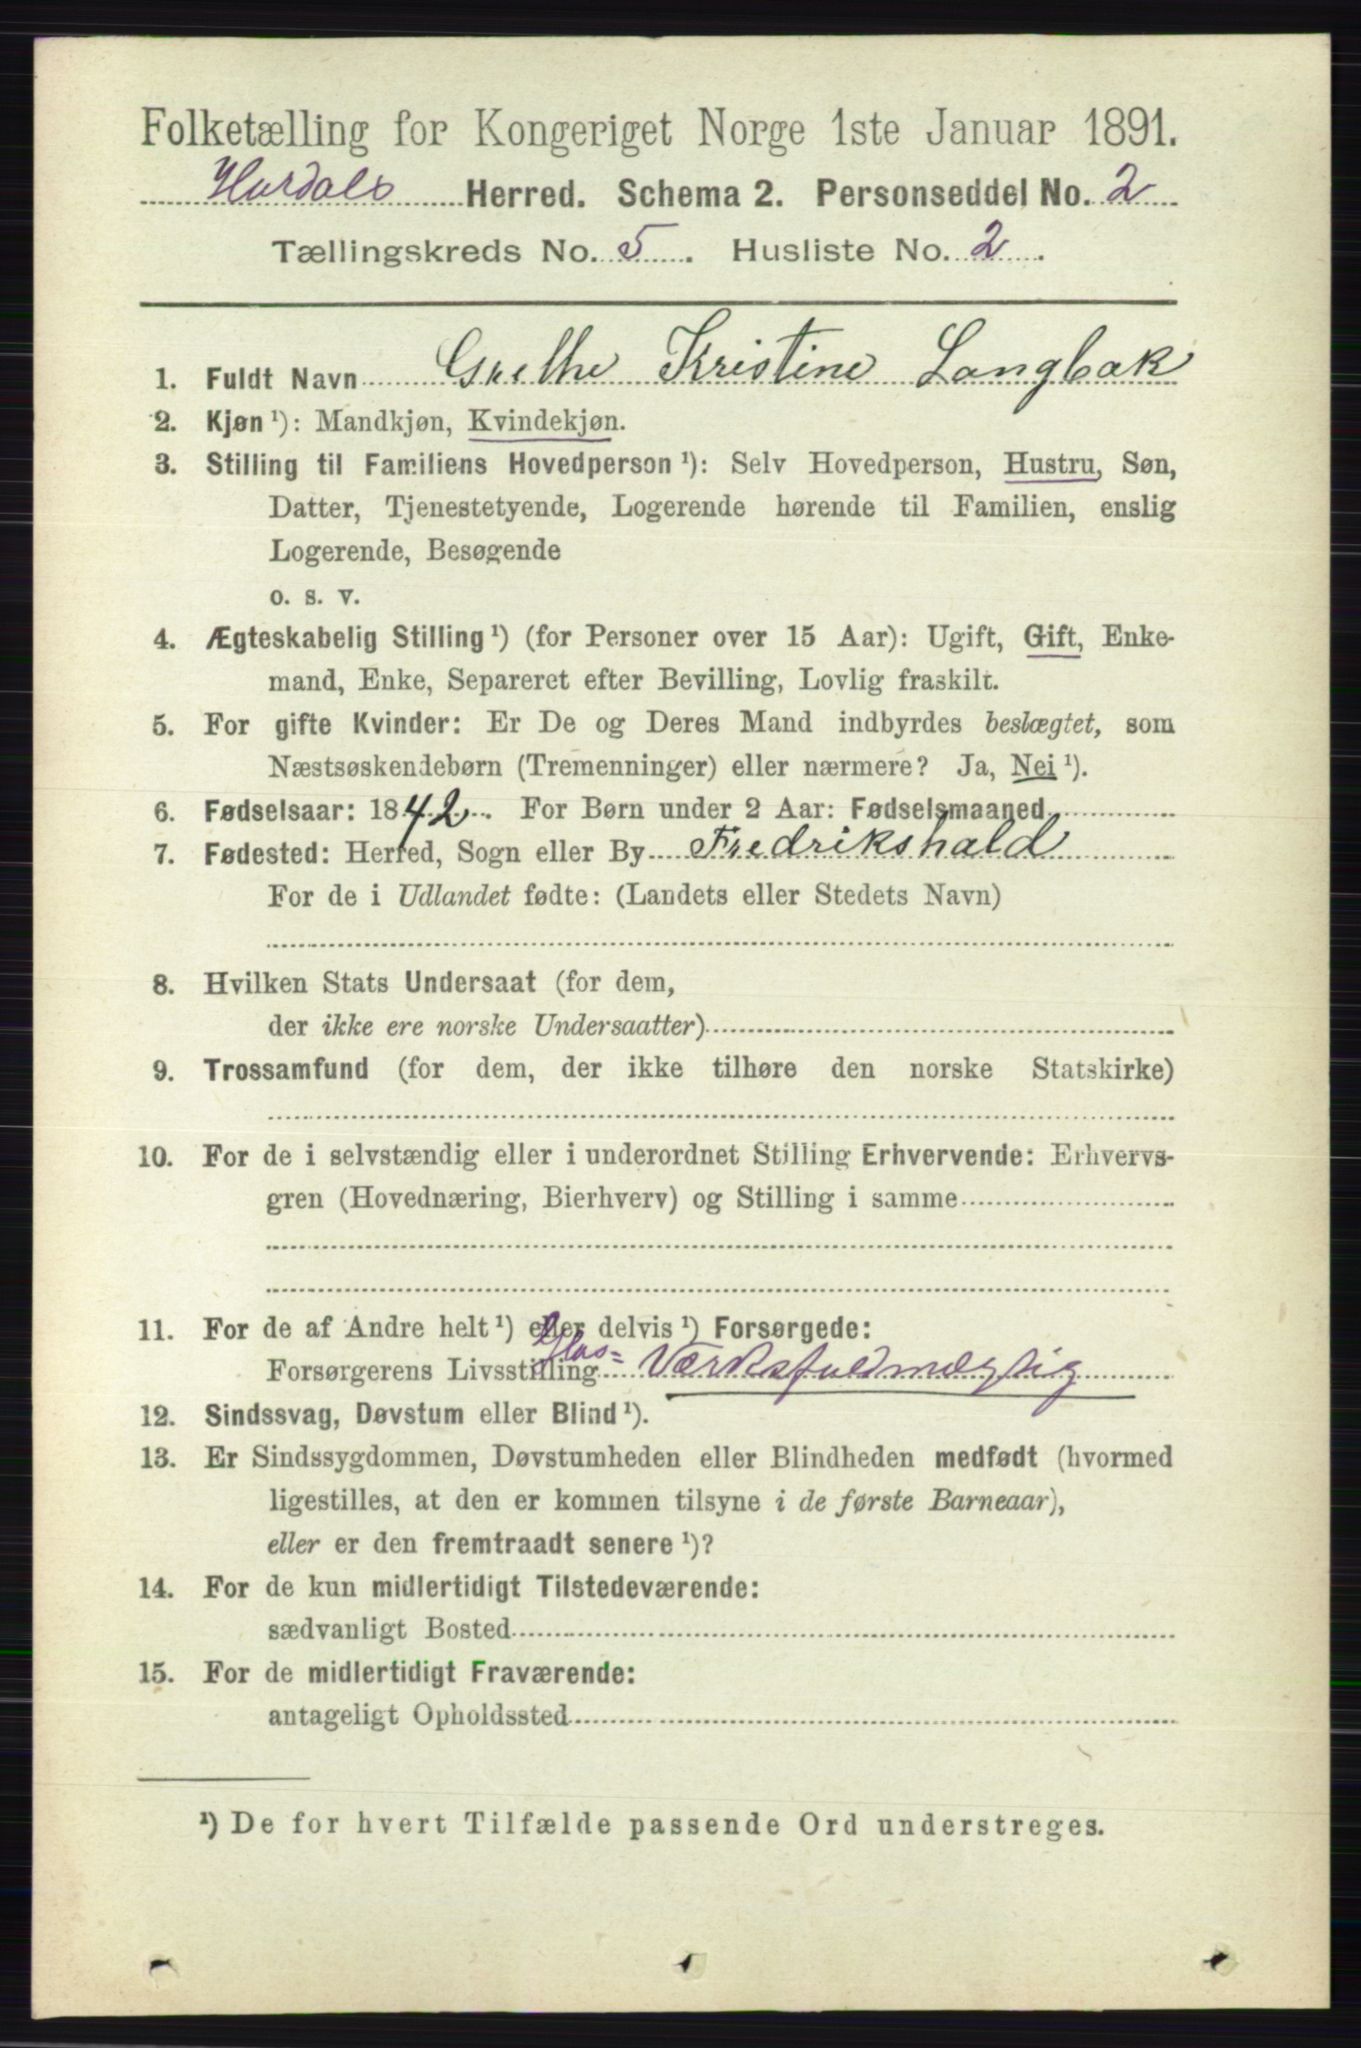 Folketælling for Kongeriget Norge 1ste Januar 1891.
Hurdals Herred. Schema 2. Personseddel No. 2
Tællingskreds No. 5. Husliste No. 2.
1. Fuldt Navn Grethe Kristine Langbak
2. Kjøn ¹): Mandkjøn, Kvindekjøn.
3. Stilling til Familiens Hovedperson ¹): Selv Hovedperson, Hustru, Søn,
Datter, Tjenestetyende, Logerende hørende til Familien, enslig
Logerende, Besøgende
o. s. v.
4. Ægteskabelig Stilling ¹) (for Personer over 15 Aar): Ugift, Gift, Enke-
mand, Enke, Separeret efter Bevilling, Lovlig fraskilt.
5. For gifte Kvinder: Er De og Deres Mand indbyrdes beslægtet, som
Næstsøskendebørn (Tremenninger) eller nærmere? Ja, Nei ¹).
6. Fødselsaar: 1842. For Børn under 2 Aar: Fødselsmaaned
7. Fødested: Herred, Sogn eller By Fredrikshald
For de i Udlandet fødte: (Landets eller Stedets Navn)
8. Hvilken Stats Undersaat (for dem,
der ikke ere norske Undersaatter)
9. Trossamfund (for dem, der ikke tilhøre den norske Statskirke)
10. For de i selvstændig eller i underordnet Stilling Erhvervende: Erhvervs-
gren (Hovednæring, Bierhverv) og Stilling i samme
11. For de af Andre helt ¹) eller delvis ¹) Forsørgede:
Forsørgerens Livsstilling Glas= Værksfuldmægtig
12. Sindssvag, Døvstum eller Blind ¹).
13. Er Sindssygdommen, Døvstumheden eller Blindheden medfødt (hvormed
ligestilles, at den er kommen tilsyne i de første Barneaar),
eller er den fremtraadt senere ¹)?
14. For de kun midlertidigt Tilstedeværende:
sædvanligt Bosted
15. For de midlertidigt Fraværende:
antageligt Opholdssted
¹) De for hvert Tilfælde passende Ord understreges.